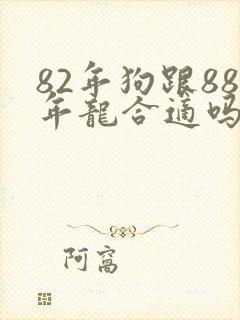 82年狗跟88
年龍合適吗
阿窩